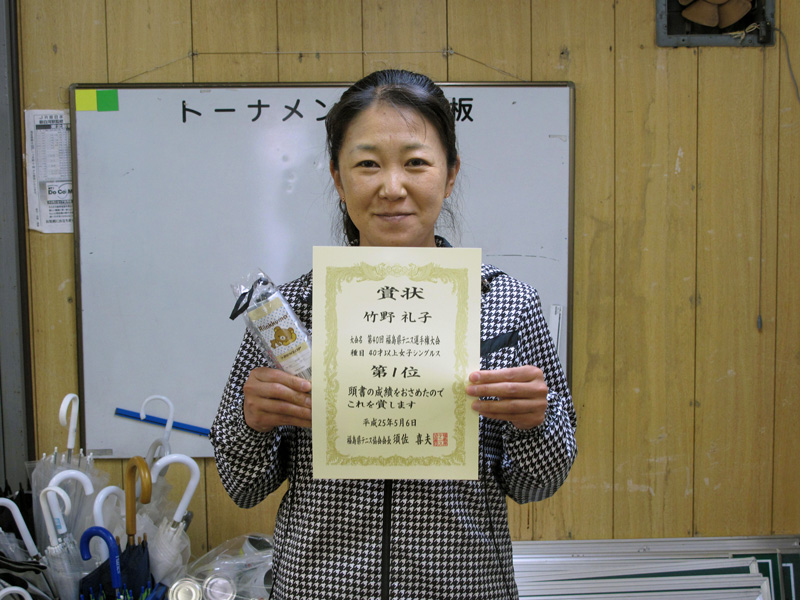 トーナメン
板
賞状
竹野 礼子
大会名 第40回 福島県テニス選手権大会
種目 40才以上女子シングルス
第1位
頭書の成績をおさめたので
これを賞します
平成25年5月6日
福島県テニス協会会長 須佐 喜夫